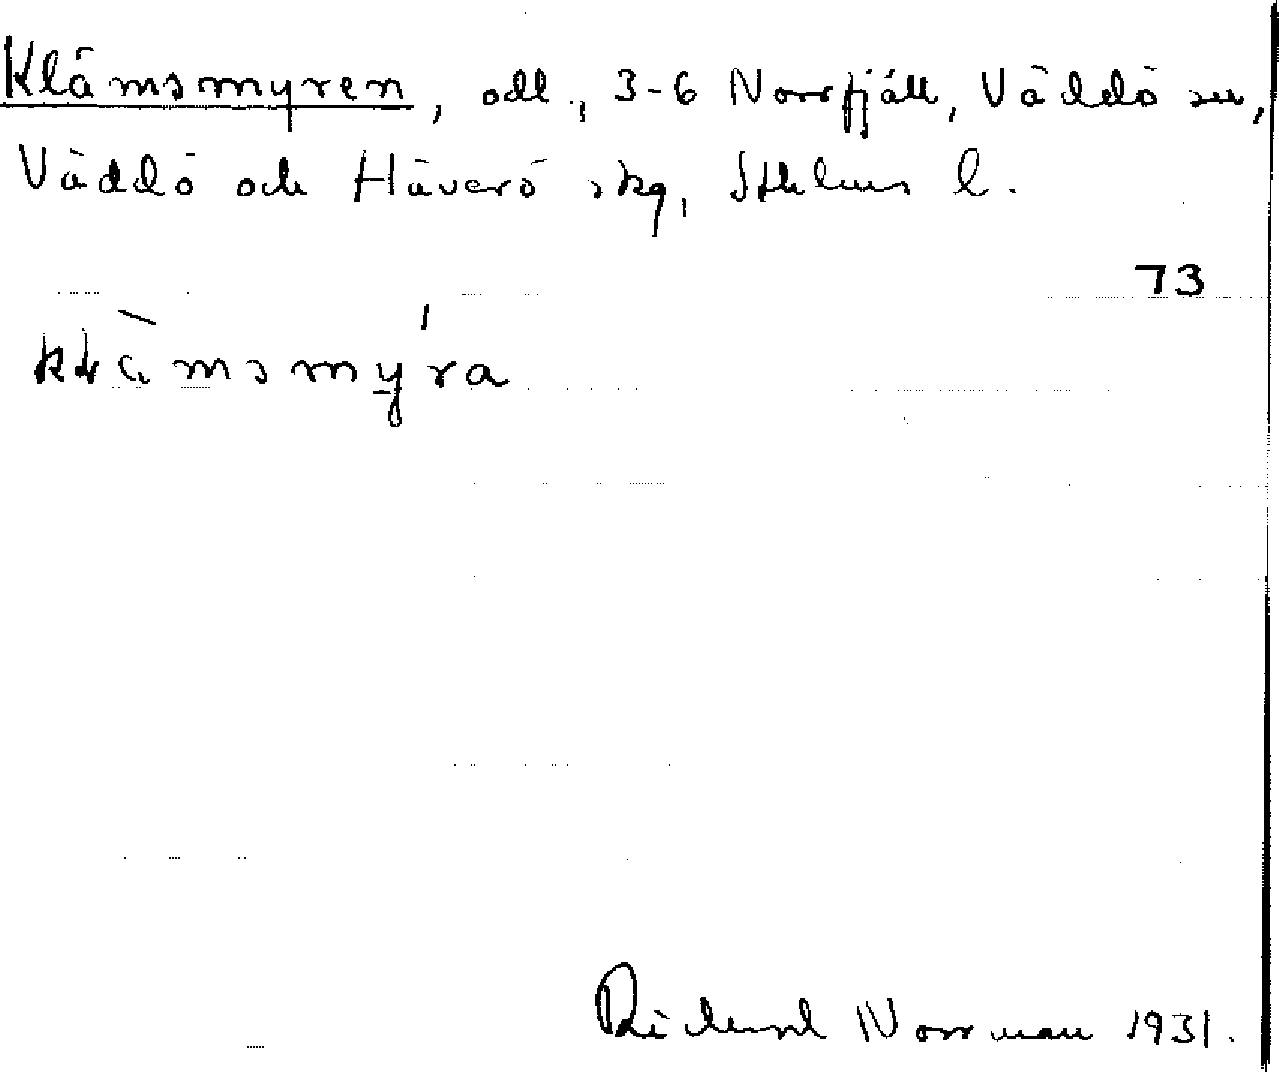 Klämsmyren, odl., 3-6 Norrfjäll, Väddö sn,
Väddö och Häverö skg, Sthlms l.
73
klämsmýra
Rickard Norrman 1931.